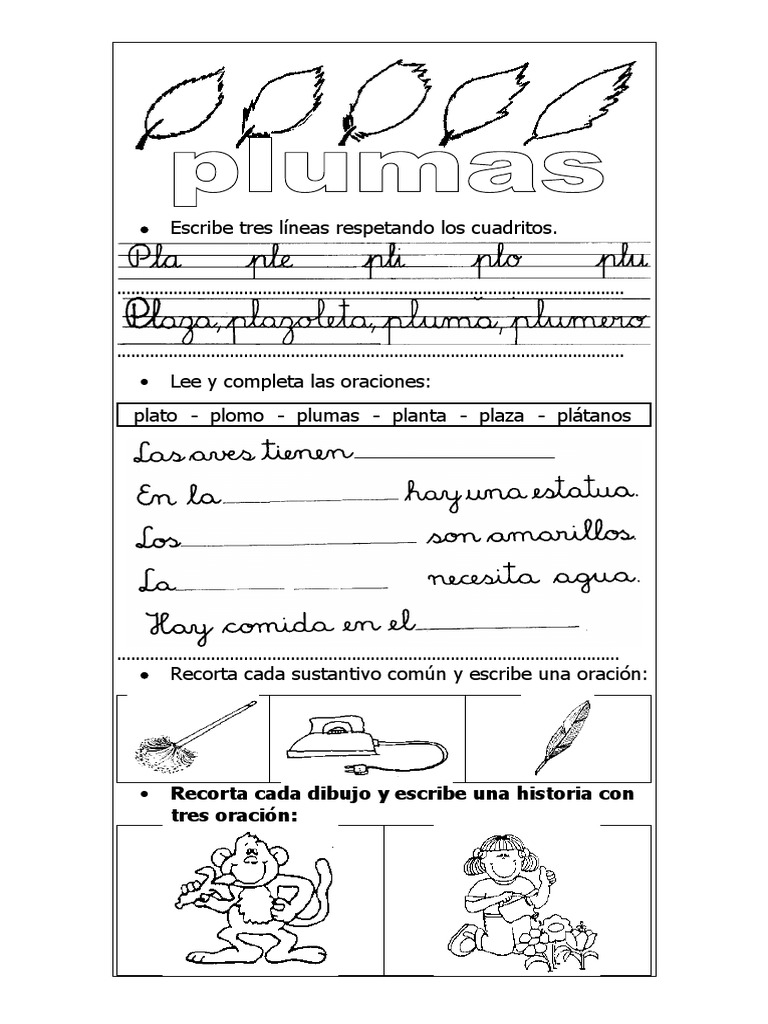 plumas
• Escribe tres líneas respetando los cuadritos.
Pla ple pli plo plu
Plaza, plazoleta, pluma, plumero
• Lee y completa las oraciones:
plato - plomo - plumas - planta - plaza - plátanos
Las aves tienen
En la hay una estatua.
Los son amarillos.
La necesita agua.
Hay comida en el
• Recorta cada sustantivo común y escribe una oración:
• Recorta cada dibujo y escribe una historia con
tres oración: